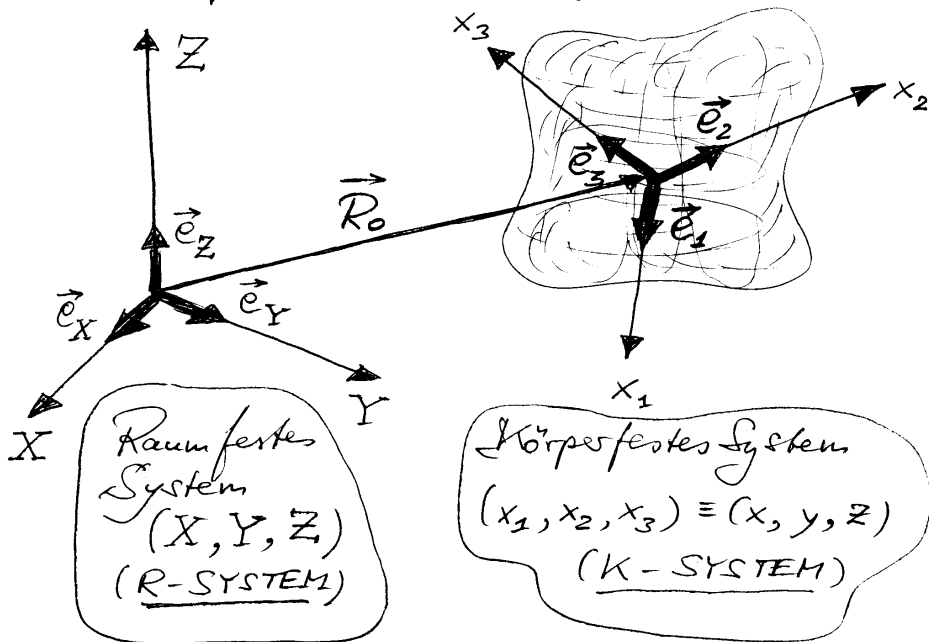 Z
x₃
x₂
e⃗₂
e⃗₃
R⃗₀
e⃗_Z
e⃗₁
e⃗_X
e⃗_Y
x₁
X
Y
Raumfestes
System
(X, Y, Z)
(R-SYSTEM)
Körperfestes System
(x₁, x₂, x₃) ≡ (x, y, z)
(K-SYSTEM)